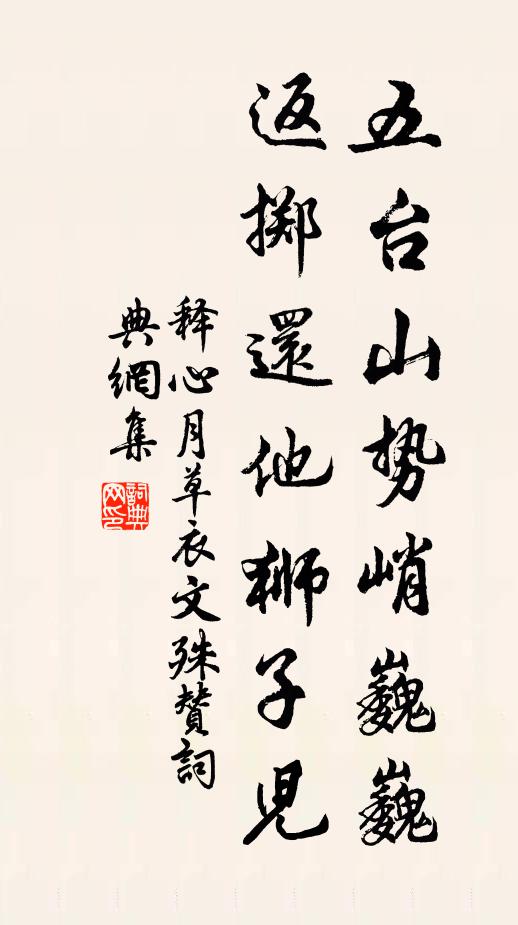 五台山势峭巍巍
返掷還他狮子児
释心月草衣文殊賛詞
典網集
詞典网印